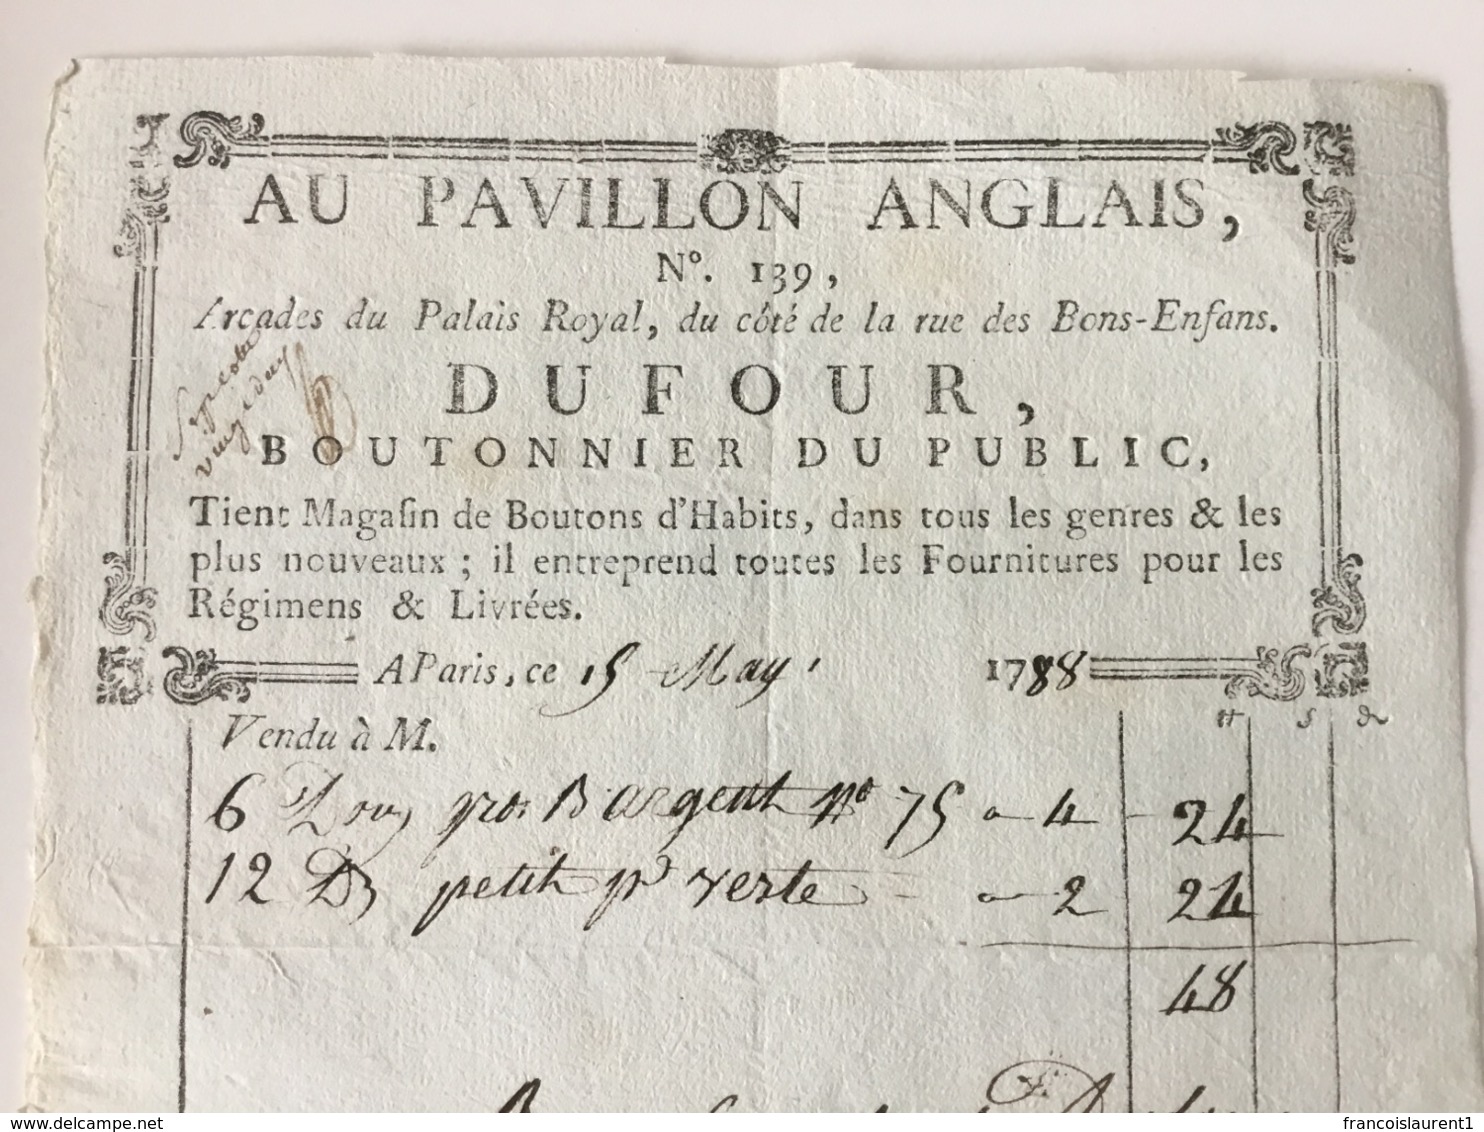 AU PAVILLON ANGLAIS,
N°. 139,
Arcades du Palais Royal, du côté de la rue des Bons-Enfans.
DUFOUR,
BOUTONNIER DU PUBLIC,
Tient Magaſin de Boutons d'Habits, dans tous les genres & les
plus nouveaux ; il entreprend toutes les Fournitures pour les
Régimens & Livrées.
A Paris, ce 15 May 1788
Vendu à M.
6 Douz gros B argent N° 75 a 4 24
12 Dz petit pd verte a 2 24
48
delcampe.net
francoislaurent1